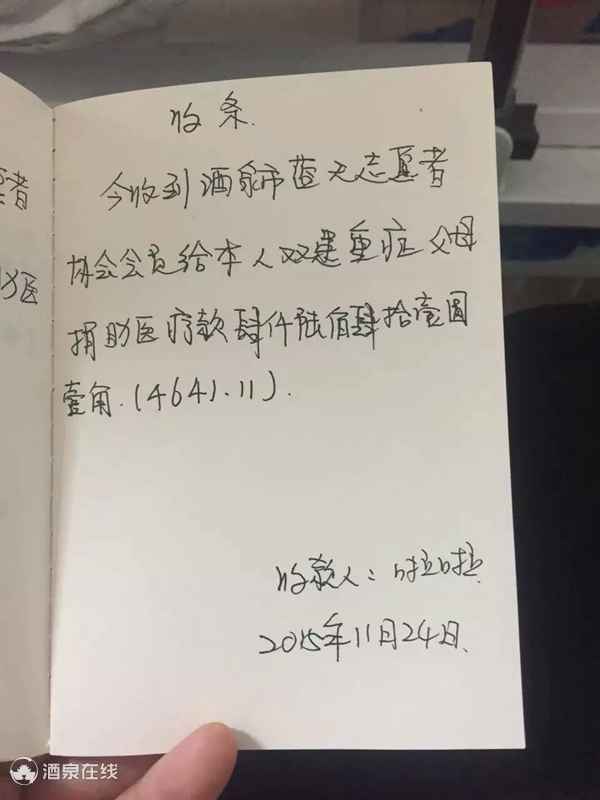 收条.
今收到酒泉市蓝天志愿者
协会会员给本人双亲重症父母
捐助医疗款肆仟陆佰肆拾壹圆
壹角.(4641.11).
收款人:啦啦
2015年11月24日.
者
医
酒泉在线